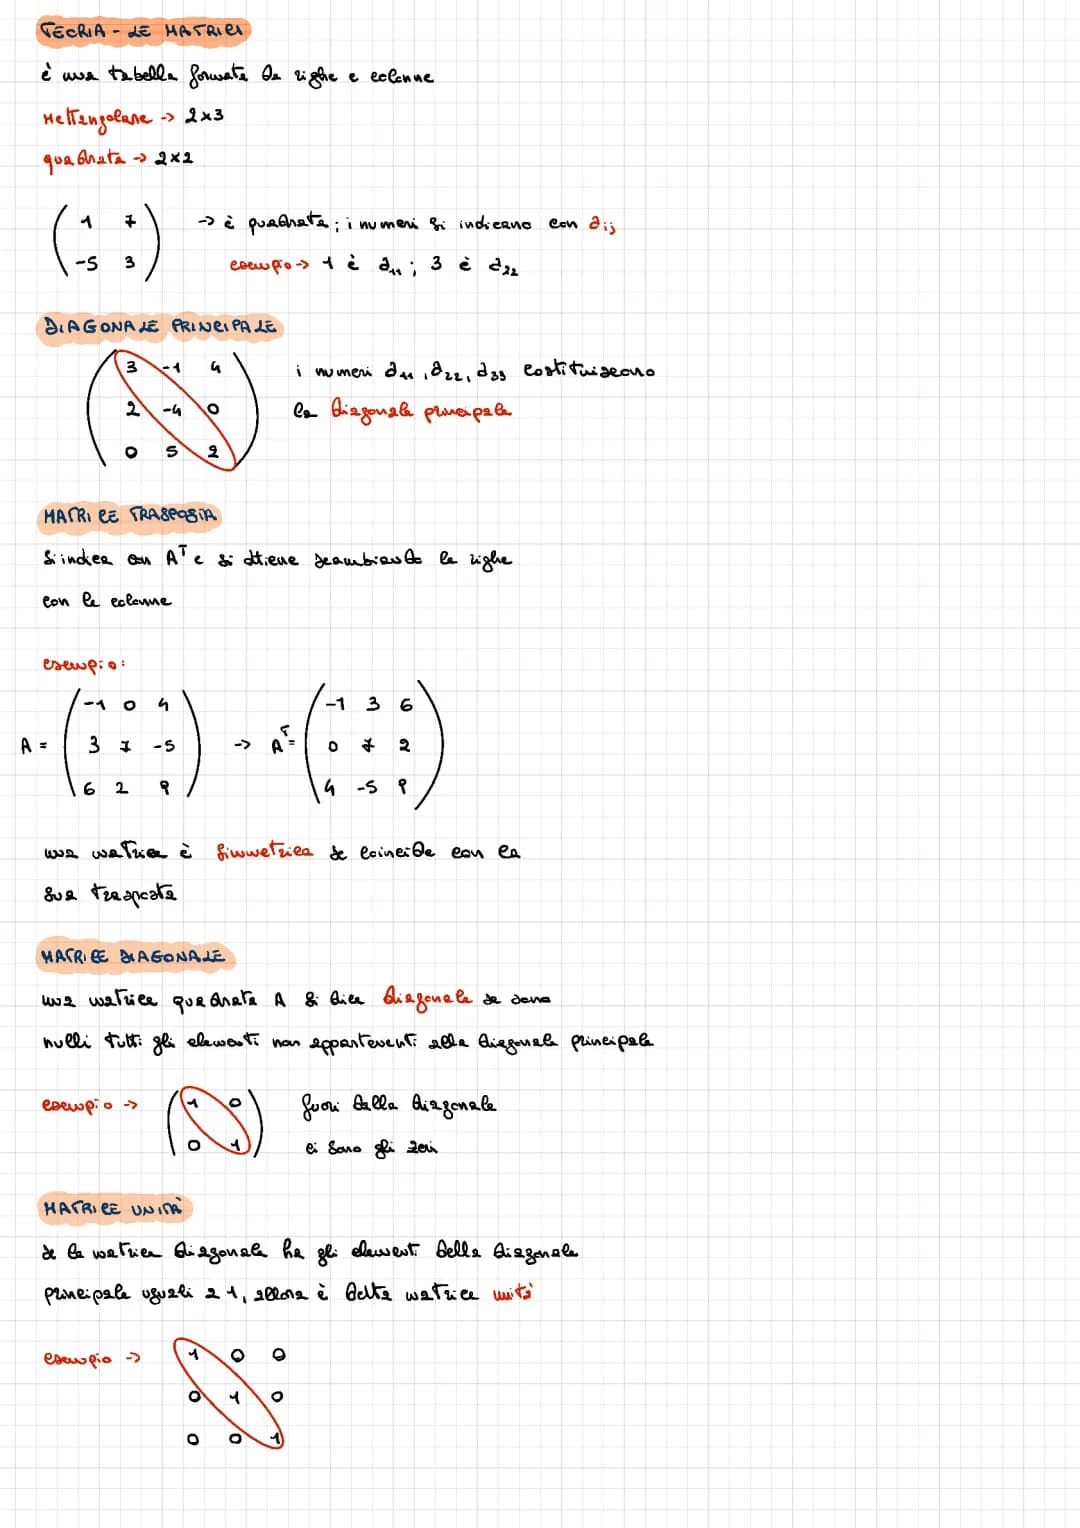 TEORIA - LE MATRICI
è una tabella formata da righe e colonne
rettangolare -> 2x3
quadrata -> 2x2
1 7 -> è quadrata; i numeri si indicano con aij
-5 3 esempio -> 1 è a11; 3 è a22
DIAGONALE PRINCIPALE
3 -1 4 i numeri a11, a22, a33 costituiscono
2 -4 0 la diagonale principale
0 5 2
MATRICE TRASPOSTA
Si indica con A^T e si ottiene scambiando le righe
con le colonne
esempio:
-1 0 4 -1 3 6
A = 3 7 -5 -> A^T = 0 7 2
6 2 9 4 -5 9
una matrice è simmetrica se coincide con la
sua trasposta
MATRICE DIAGONALE
una matrice quadrata A si dice diagonale se sono
nulli tutti gli elementi non appartenenti alla diagonale principale
esempio -> 1 0 fuori dalla diagonale
0 1 ci sono gli zeri
MATRICE UNITÀ
se la matrice diagonale ha gli elementi della diagonale
principale uguali a 1, allora è detta matrice unità
esempio -> 1 0 0
0 1 0
0 0 1